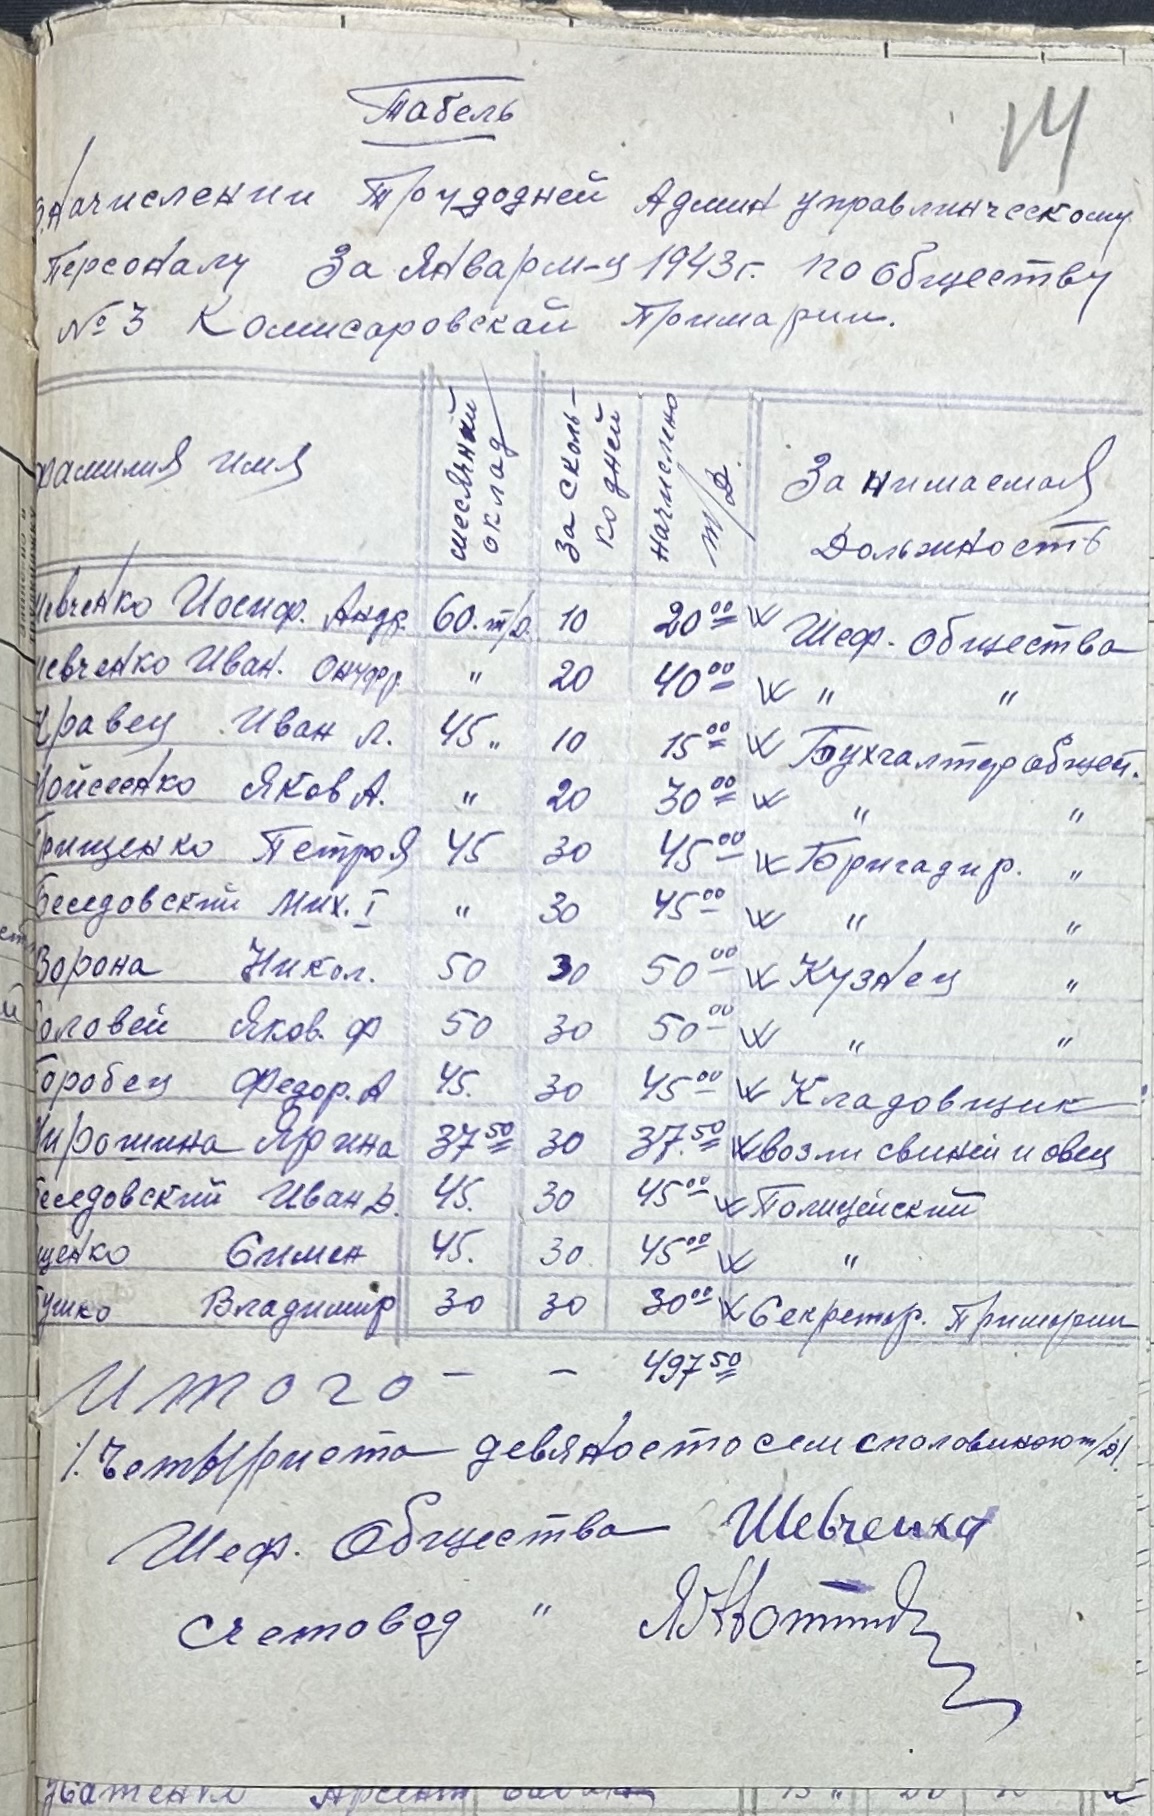 Табель
14
Начислении Трудодней Админ управлинческому
Персоналу За Январ м-ц 1943 г. по обществу
№ 3 Комисаровской Примарии.
Фамилия имя месячний оклад За сколь-ко дней Начислено т/д. Занимаемая Должность
Шевченко Иосиф. Андр. 60. т/д. 10 20 00 Шеф. общества
Шевченко Иван. Онуфр. " 20 40 00 " "
Кравец Иван Л. 45 " 10 15 00 Бухгалтер общест.
Мойсеенко Яков А. " 20 30 00 " "
Грищенко Петро Я 45 30 45 00 Бригадир. "
Беседовский Мих. I " 30 45 00 " "
Ворона Никол. 50 30 50 00 Кузнец "
Соловей Яков. Ф 50 30 50 00 " "
Горобец Федор. А 45. 30 45 00 Кладовщик
Ярина 37 50 30 37. 50 возли свиней и овец
Беседовский Иван Д. 45. 30 45 00 Полицейский
щенко Симен 45. 30 45 00 "
Владимир 30 30 30 00 Секретар. Примарии
Итого - - 497 50
/. Четыриста девяносто сем споловиною т/д/.
Шеф. Общества Шевченко
Счетовод "
Арсент